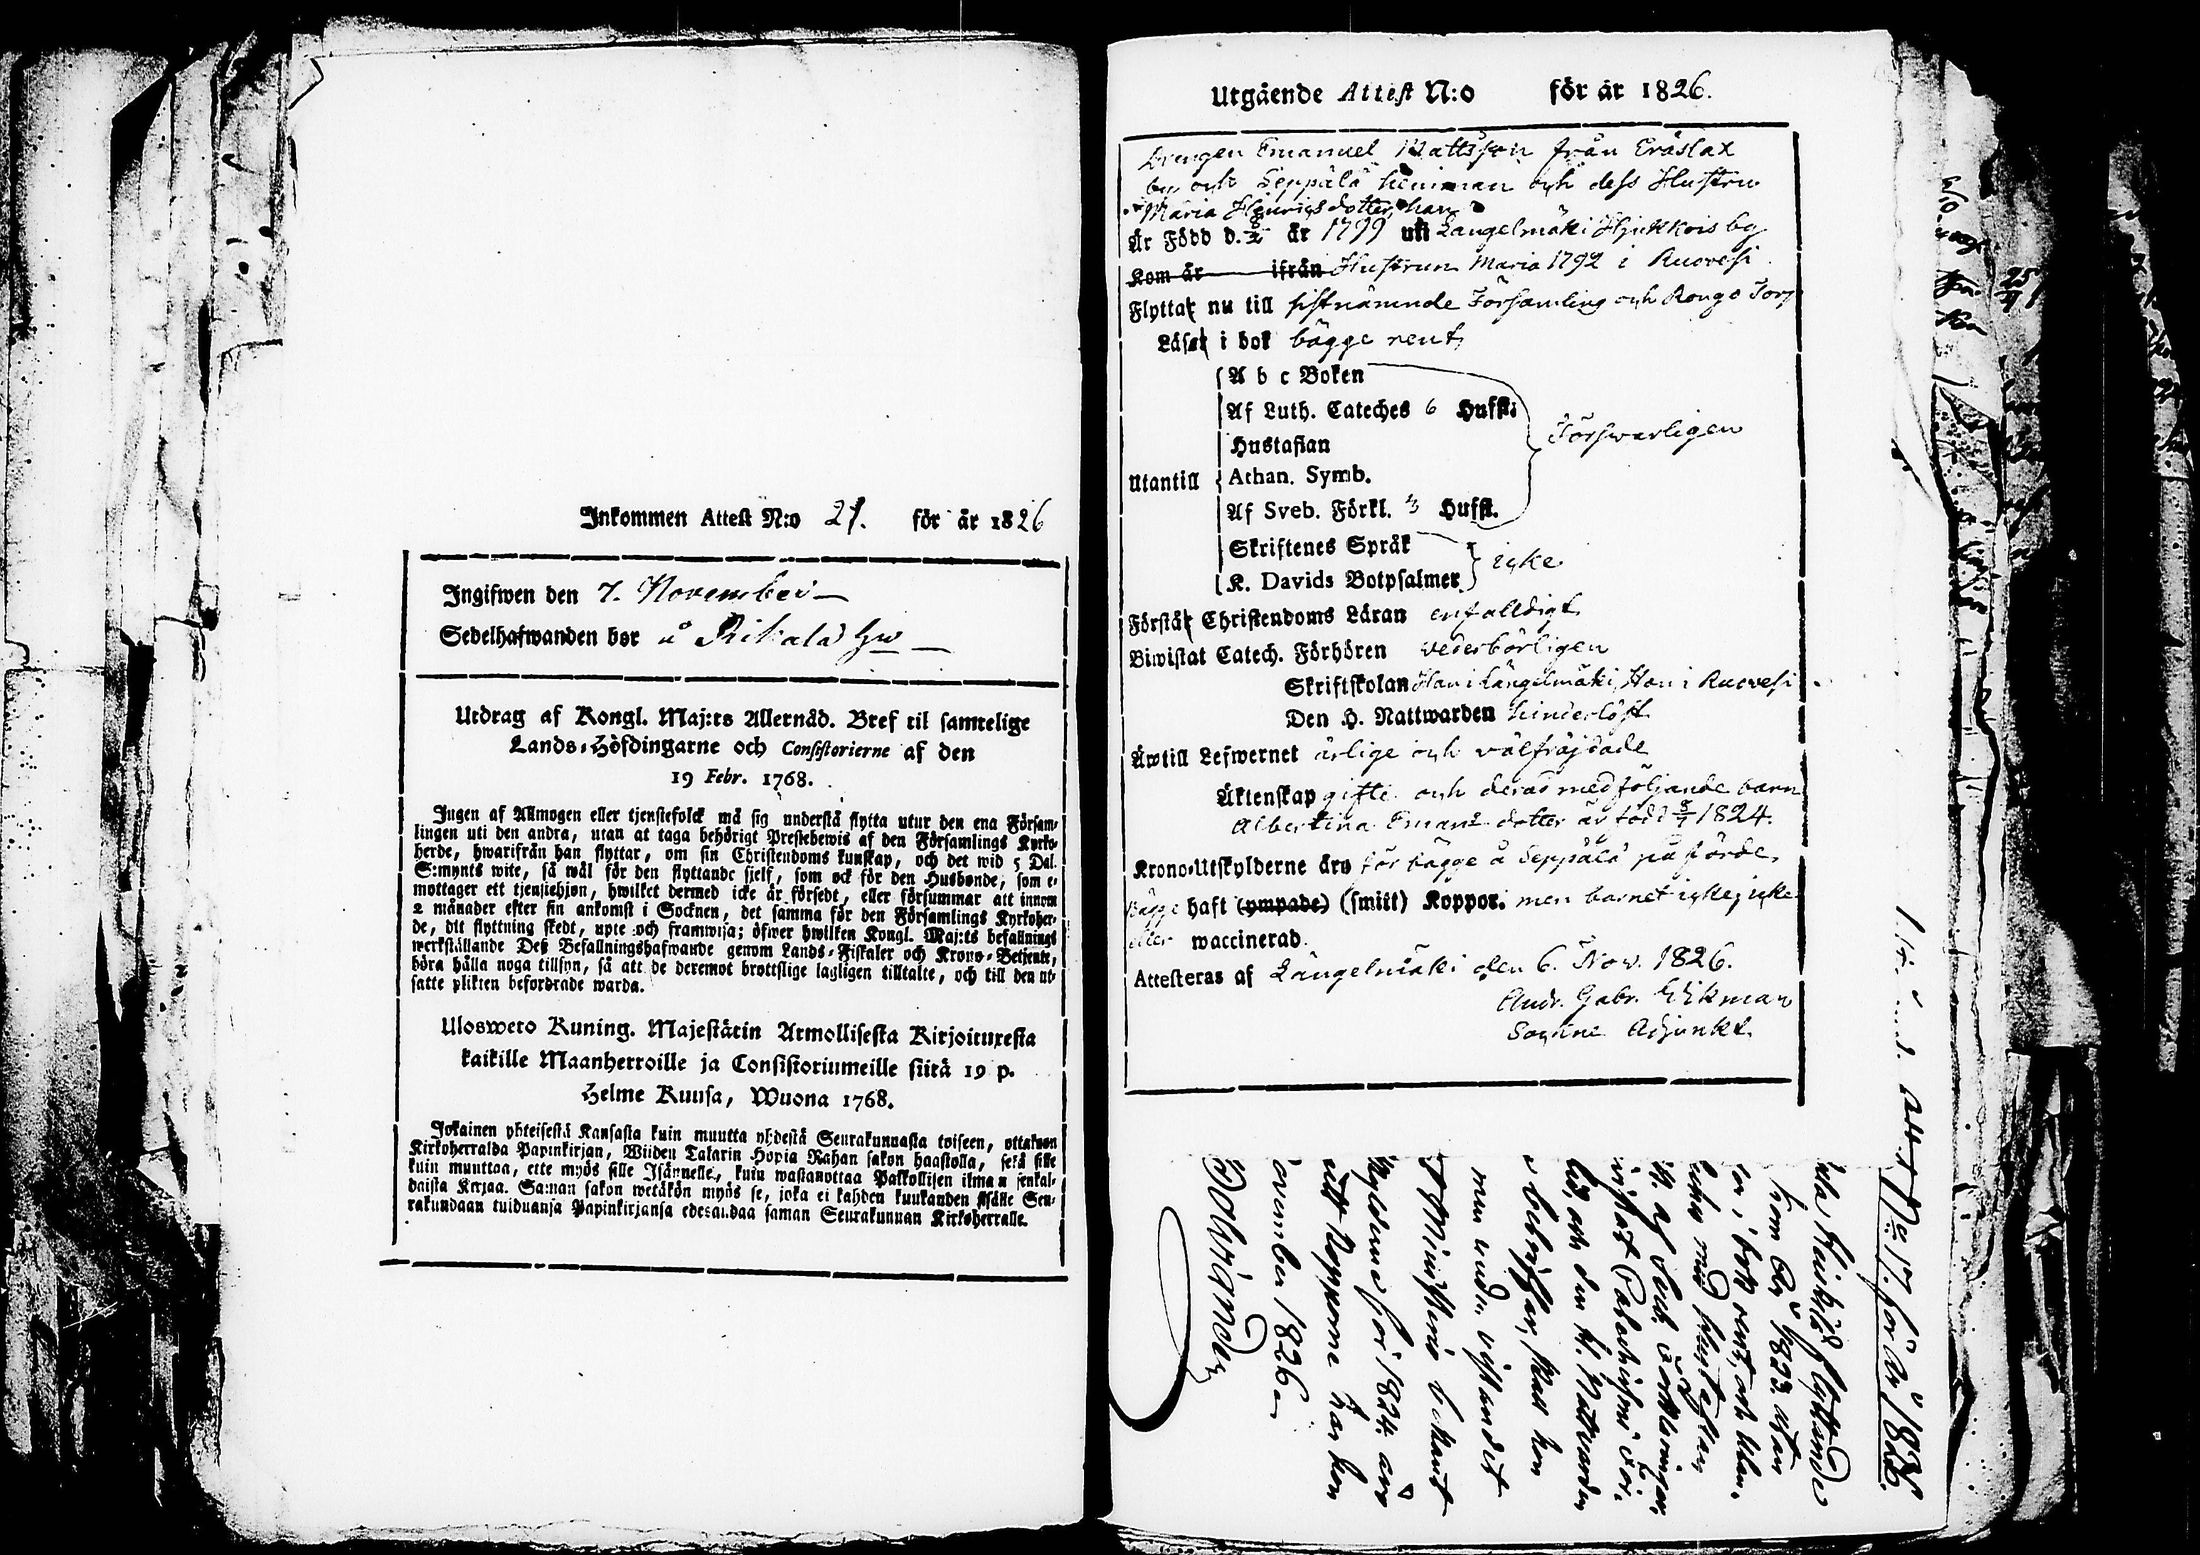 Inkommen Attest N:o 21. för år 1826
Ingifwen den 7. November
Sedelhafwanden bor å
Utdrag af Kongl. Maj:ts Allernåd. Bref til samtelige
Lands-Höfdingarne och Consistorierne af den
19 Febr. 1768.
Ingen af Allmogen eller tjenstefolck må sig understå flytta utur den ena Försam-
lingen uti den andra, utan at taga behörigt Prestebewis af den Församlings Kyrko-
herde, hwarifrån han flyttar, om sin Christendoms kunskap, och det wid 5 Dal.
S:mynts wite, så wäl för den flyttande sjelf, som ock för den Husbonde, som e-
mottager ett tjenstehjon, hwilket dermed icke är försedt, eller försummar att innom
2 månader efter sin ankomst i Socknen, det samma för den Församlings Kyrkoher-
de, dit flyttning skedt, upte och framwisa; öfwer hwilken Kongl. Maj:ts befallnings
werkställande Deß Befallningshafwande genom Lands-Fiskaler och Krono-Betjente,
böra hålla noga tillsyn, så att de deremot brottslige lagligen tilltalte, och till den ut-
satte plikten befordrade warda.
Ulosweto Kuning. Majestätin Armollisesta Kirjoituxesta
kaikille Maanherroille ja Consistoriumeille siitä 19 p.
Helme Kuusa, Wuona 1768.
Jokainen yhteisestä Kansasta kuin muutta yhdestä Seurakunnasta toiseen, ottakoon
Kirkoherralda Papinkirjan, Wiiden Talarin Hopia Rahan sakon haastolla, sekä sille
kuin muuttaa, ette myös sille Isännelle, kuin wastanottaa Palkollisen ilman senkal-
daista Kirjaa. Saman sakon wetäkön myös se, joka ei kahden kuukauden sisälle Seu-
rakundaan tulduansa Papinkirjansa edesandaa saman Seurakunnan Kirkoherralle.
Utgående Attest N:o för år 1826.
Drengen Emanuel Mattsson från Eräslax
by och Seppälä hemman och dess Hustru
Maria Henricsdotter, han
Är Född d. år 1799 uti Längelmäki Hjukkois by
Kom år ifrån Hustrun Maria 1792 i Ruovesi
Flytta nu till sistnämnde Församling och Rongo Torp
Läsa i bok bägge rent,
A b c Boken
Af Luth. Cateches 6 Hufst.
Hustaflan
Försvarligen
Utantill Athan. Symb.
Af Sveb. Förkl. 3 Hufst.
Skriftenes Språk
icke
K. Davids Botpsalmer
Förstå Christendoms Läran enfalldigt
Biwistat Catech. Förhören vederbörligen
Skriftskolan Han i Längelmäki, Hon i Ruovesi
Den H. Nattwarden hinderlöst
Äro till Lefwernet ärlige och välfräjdade
Äktenskap gifte och deras medföljande barn
Albertina Emans dotter är född 5/7 1824.
Krono-Utskylderne äro för bägge å Seppälä påförde.
Bägge haft (ympade) (smitt) Koppor. men barnet icke, icke
eller waccinerad.
Attesteras af Längelmäki den 6. Nov. 1826.
Andr. Gabr. Wikman
Sockne Adjunkt.
N:o 17. för år 1826.
flyttande
1823. utan
i bok rent, och utan-
med Hustaflan
af Sveb. Förklaringar
och den H. Nattvarden
bekant
för 1824 äro
Kopporne har hon
november 1826.